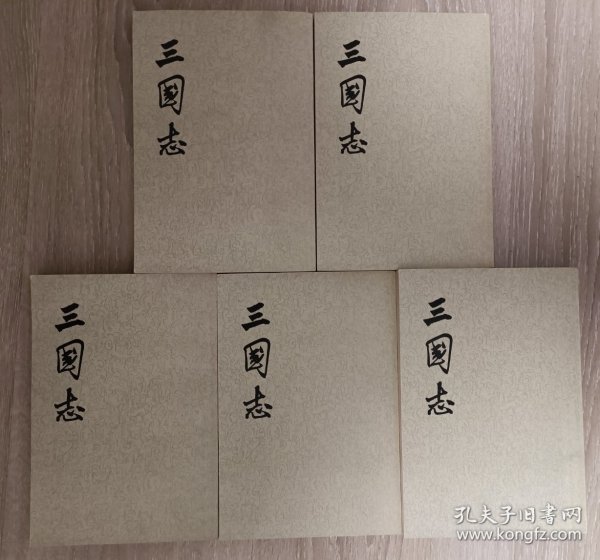 三國志
三國志
三國志
三國志
三國志
孔夫子旧书网
www.kongfz.com